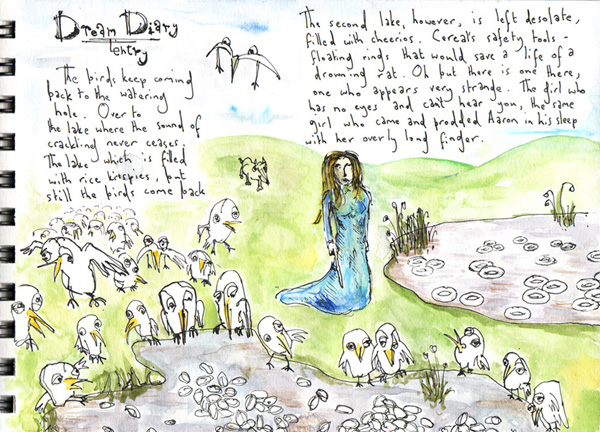 Dream Diary
entry
The birds keep coming
back to the watering
hole. Over to
the lake where the sound of
crackling never ceases.
The lake which is filled
with rice krispies, but
still the birds come back
The second lake, however, is left desolate,
filled with cheerios. Cereal's safety tools -
floating rings that would save a life of a
drowning rat. Oh but there is one there,
one who appears very strange. The girl who
has no eyes and can't hear you, the same
girl who came and prodded Aaron in his sleep
with her overly long finger.